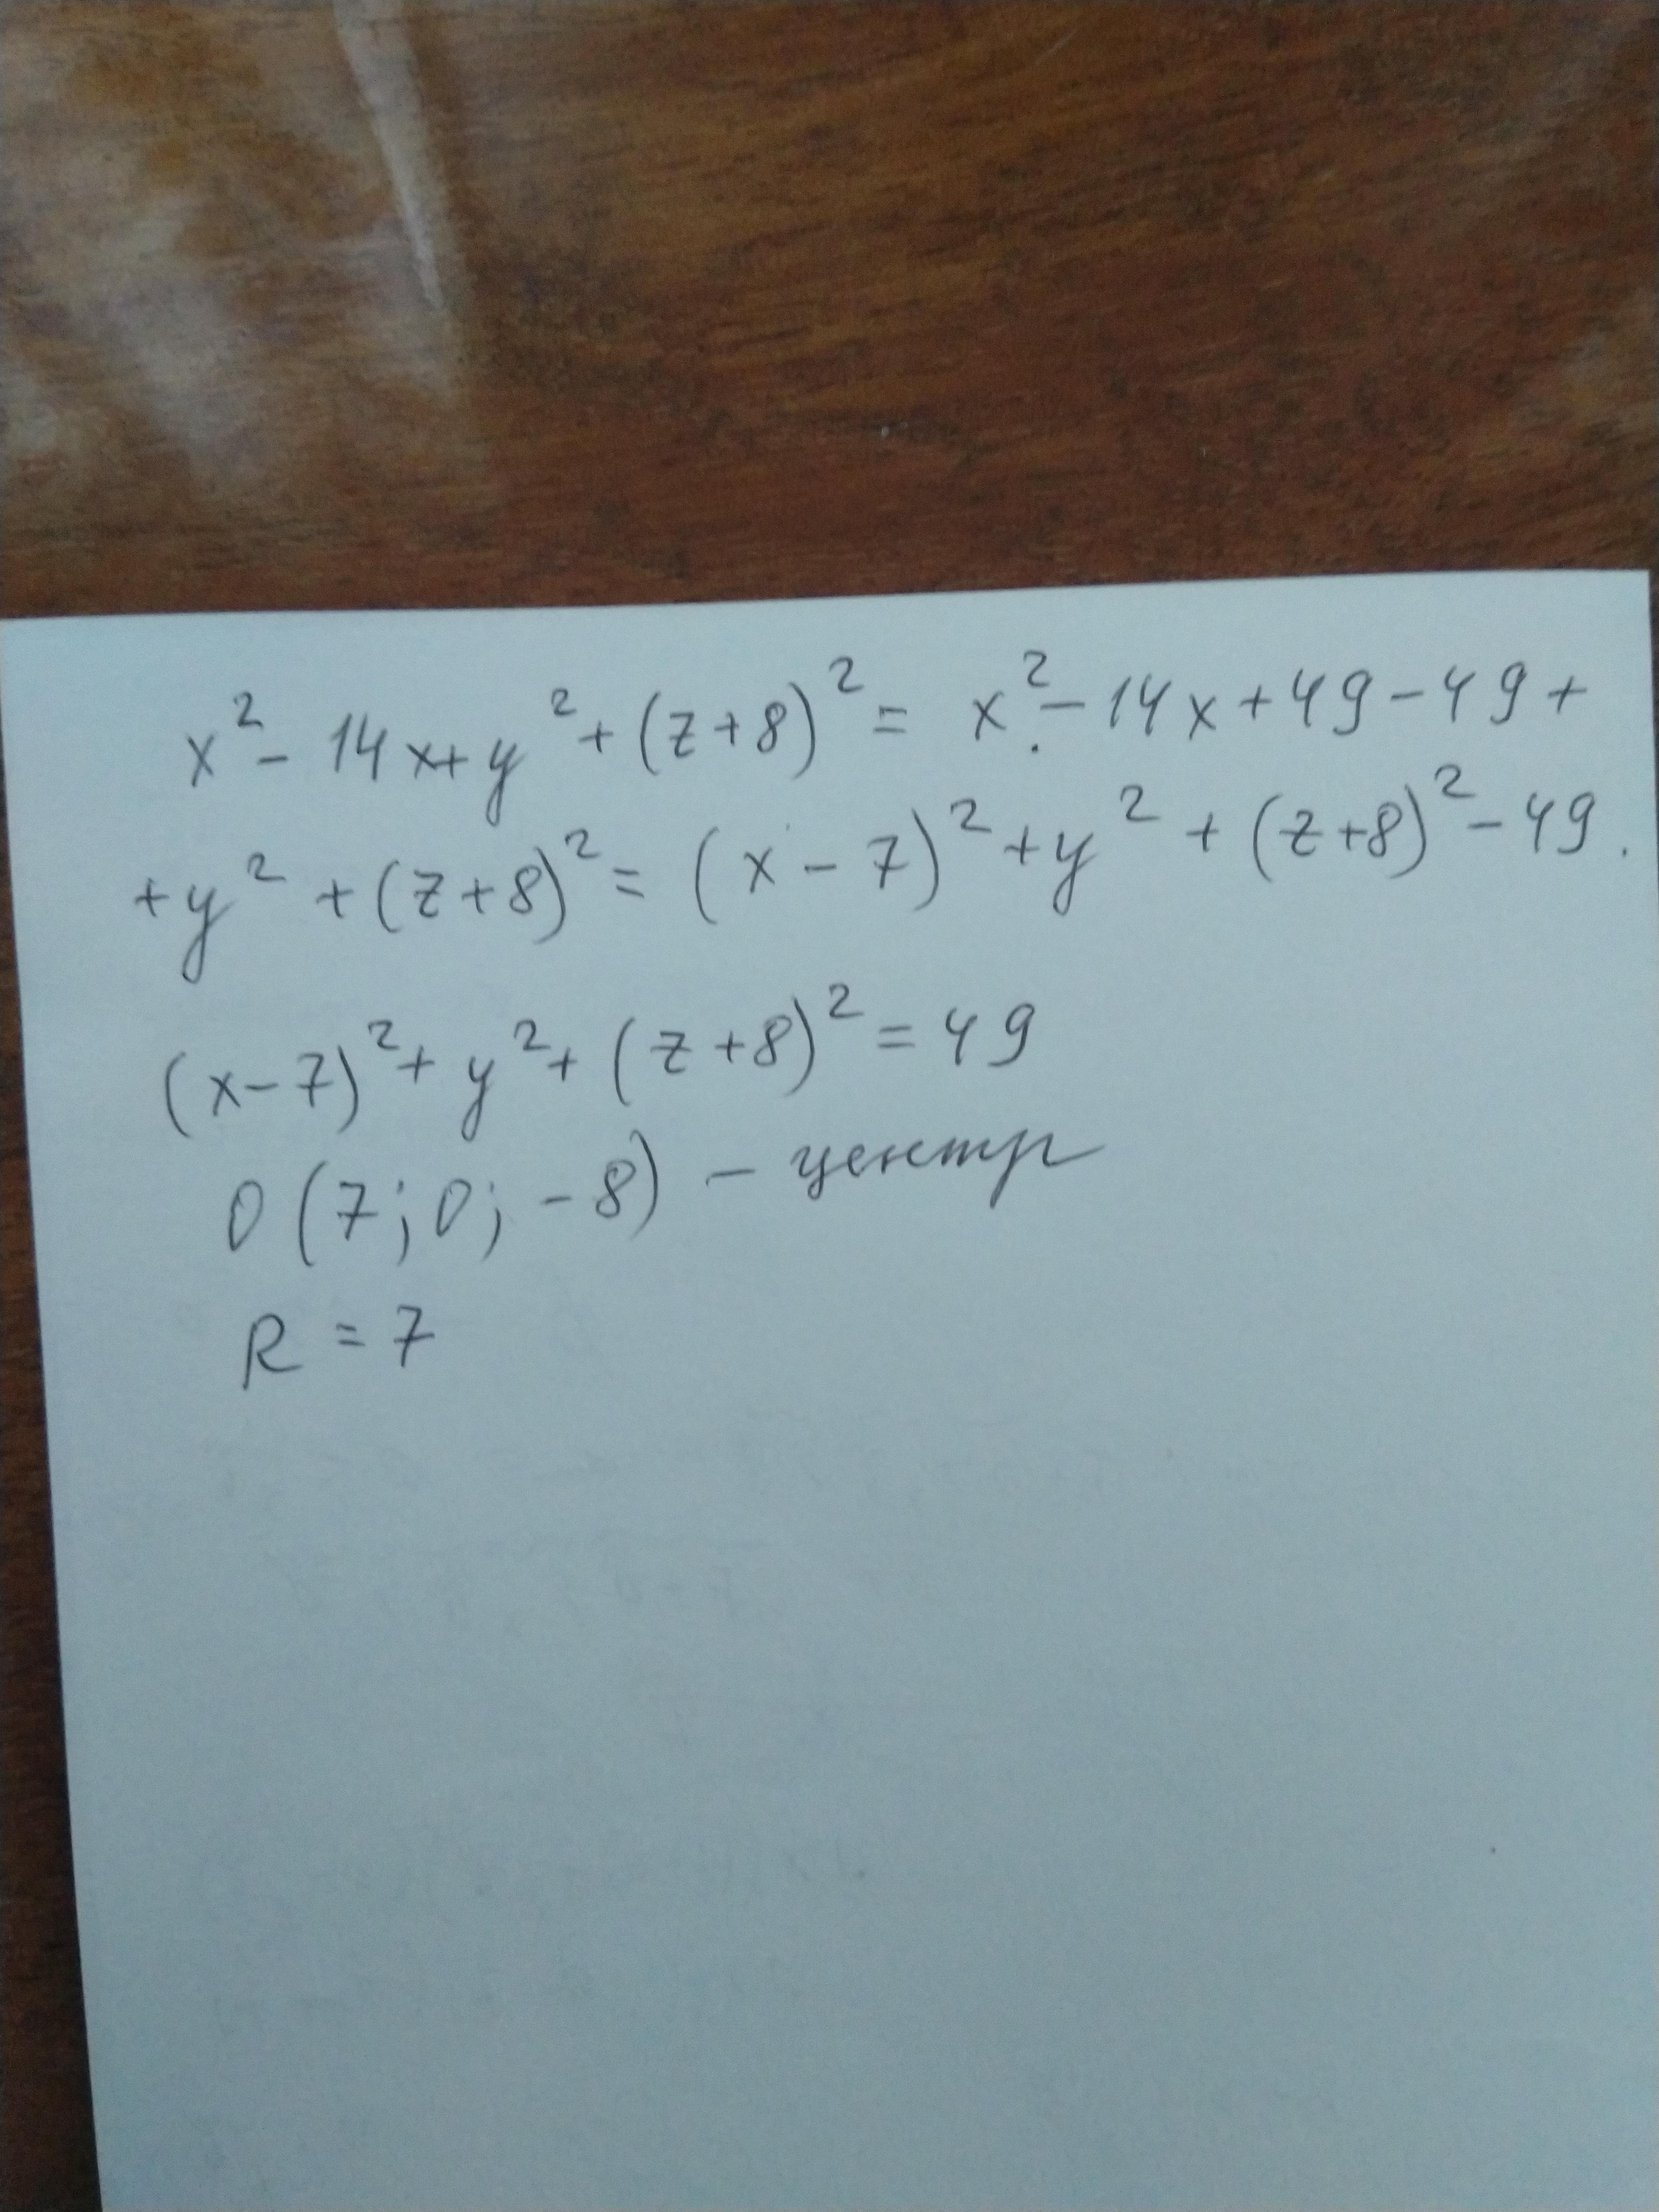 x² - 14x + y² + (z + 8)² = x² - 14x + 49 - 49 +
+ y² + (z + 8)² = (x - 7)² + y² + (z + 8)² - 49.
(x - 7)² + y² + (z + 8)² = 49
O (7; 0; -8) - центр
R = 7